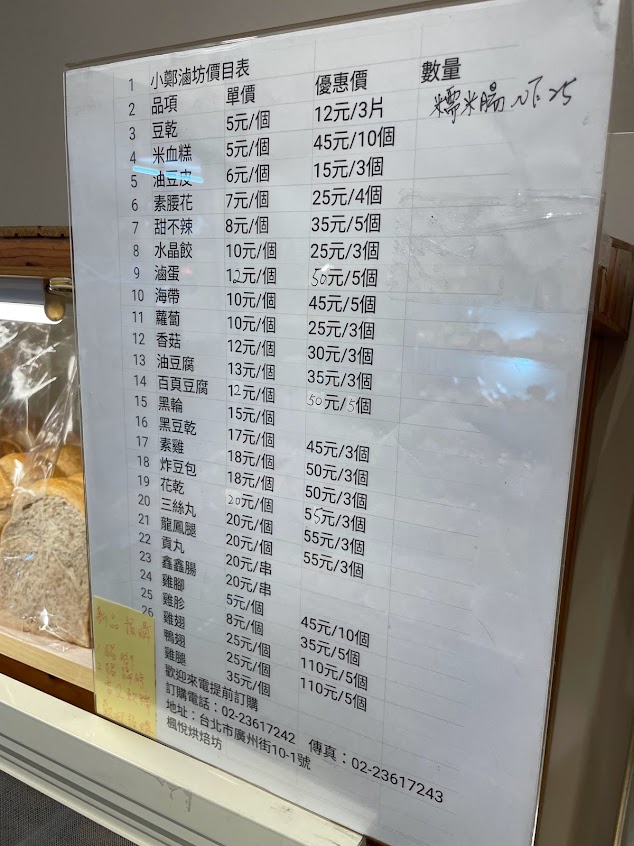 1 小鄭滷坊價目表
2 品項 單價 優惠價 數量
3 豆乾 5元/個 12元/3片 糯米腸 NT.25
4 米血糕 5元/個 45元/10個
5 油豆皮 6元/個 15元/3個
6 素腰花 7元/個 25元/4個
7 甜不辣 8元/個 35元/5個
8 水晶餃 10元/個 25元/3個
9 滷蛋 12元/個 50元/5個
10 海帶 10元/個 45元/5個
11 蘿蔔 10元/個 25元/3個
12 香菇 12元/個 30元/3個
13 油豆腐 13元/個 35元/3個
14 百頁豆腐 12元/個 50元/5個
15 黑輪 15元/個
16 黑豆乾 17元/個 45元/3個
17 素雞 18元/個 50元/3個
18 炸豆包 18元/個 50元/3個
19 花乾 20元/個 55元/3個
20 三絲丸 20元/個 55元/3個
21 龍鳳腿 20元/個 55元/3個
22 貢丸 20元/串
23 鑫鑫腸 20元/串
24 雞腳 5元/個 45元/10個
25 雞胗 8元/個 35元/5個
26 雞翅 25元/個 110元/5個
鴨翅 25元/個 110元/5個
雞腿 35元/個
歡迎來電提前訂購
訂購電話：02-23617242 傳真：02-23617243
地址：台北市廣州街10-1號
楓悅烘焙坊